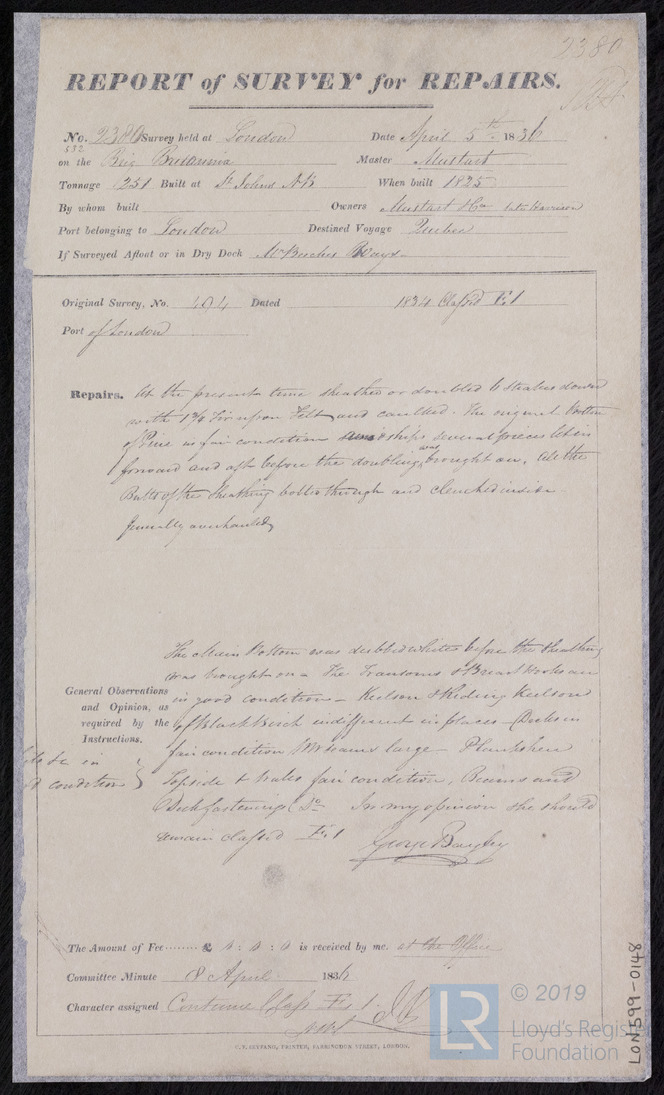 2380
REPORT of SURVEY for REPAIRS.
No. 2380 Survey held at London Date April 5th 1836
532
on the Brig Britannia Master Mustart
Tonnage 251 Built at St Johns NB When built 1825
By whom built Owners Mustart & Harrison
Port belonging to London Destined Voyage Quebec
If Surveyed Afloat or in Dry Dock Mr Beeches Ways
Original Survey, No. 494 Dated 1834 Classed E.1
Port of London
Repairs. At the present time sheathed or doubled 6 strakes down
with 1¾ Fir upon Felt and caulked. The original bottom
of Pine in fair condition ships several pieces let in
forward and aft before the doubling was brought on, All the
Butts of the sheathing bolted through and clenched inside
generally overhauled
General Observations and Opinion, as required by the Instructions.
The Main Bottom was dubbed white before the sheathing
was brought on - The Transoms & Breast Hooks are
in good condition - Keelson & Riding Keelsons
of Black Birch indifferent in places - Decks in
fair condition seams large - Planksheer
to be in
condition }
Topside & Wales fair condition, Beams and
Deck fastenings Do In my opinion she should
remain classed E.1
George Bayley
The Amount of Fee ........ £ : : is received by me. at the Office
Committee Minute 8 April 1836
Character assigned Continue Class E 1
C. F. SEYFANG, PRINTER, FARRINGDON STREET, LONDON.
LR
© 2019
Lloyd's Register
Foundation
LON599-0148